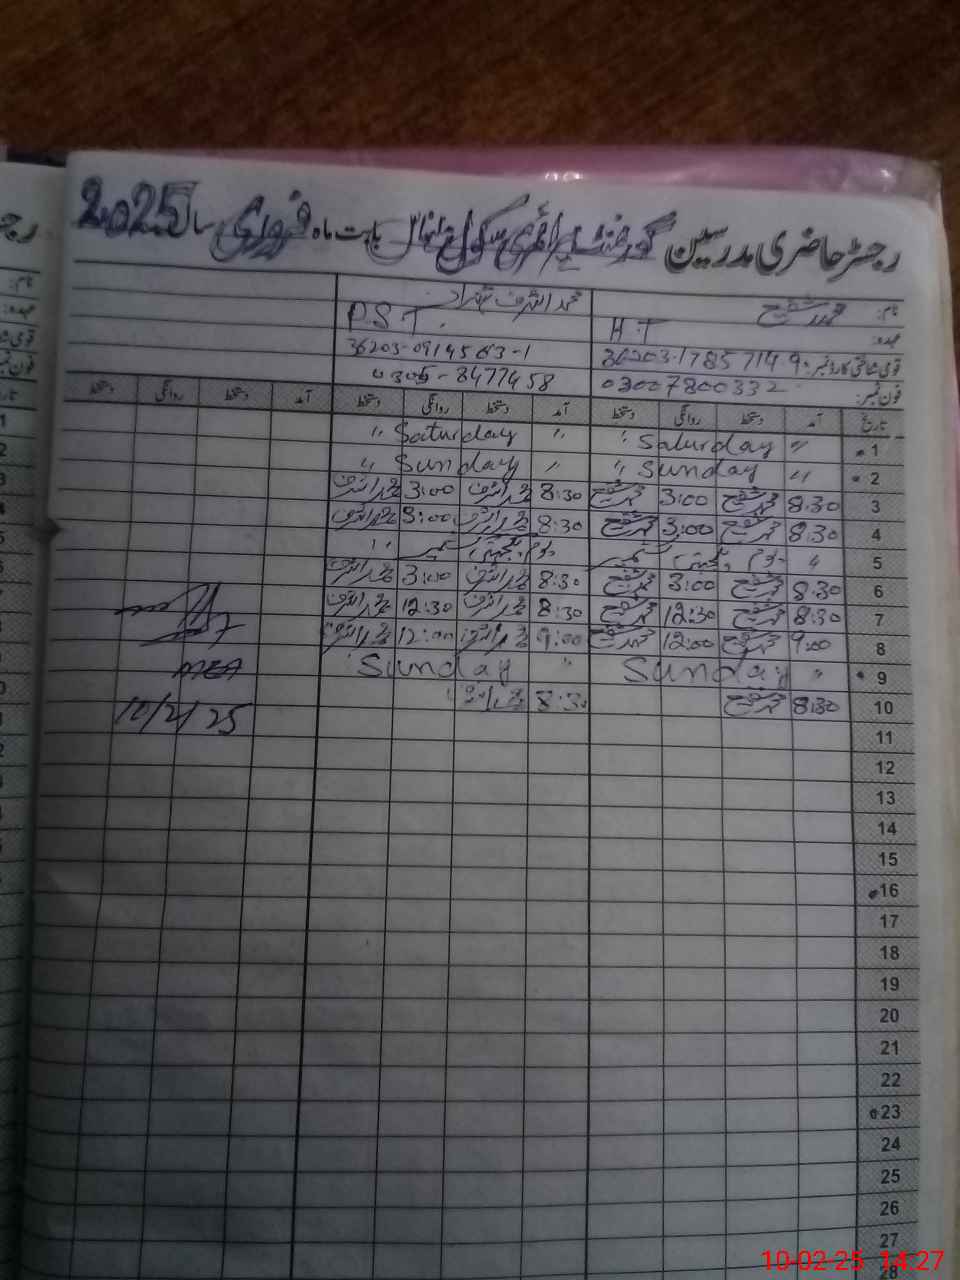 رجسٹر حاضری مدرسین گورنمنٹ پرائمری سکول بابت ماہ فروری سال 2025
نام: محمد شفیع محمد اشرف شہزاد
عہدہ: H.T P.S.T.
قومی شناختی کارڈ نمبر: 36203-1785714-9 36203-0914563-1
فون نمبر: 03007800332 0305-8477458
تاریخ آمد دستخط روانگی دستخط آمد دستخط روانگی دستخط آمد دستخط روانگی دستخط
1 " Saturday " " Saturday "
2 " Sunday " " Sunday "
3 8:30 محمد شفیع 3:00 محمد شفیع 8:30 محمد اشرف 3:00 محمد اشرف
4 8:30 محمد شفیع 3:00 محمد شفیع 8:30 محمد اشرف 3:00 محمد اشرف
5 " یوم یکجہتی کشمیر یوم یکجہتی کشمیر "
6 8:30 محمد شفیع 3:00 محمد شفیع 8:30 محمد اشرف 3:00 محمد اشرف
7 8:30 محمد شفیع 12:30 محمد شفیع 8:30 محمد اشرف 12:30 محمد اشرف
8 9:00 محمد شفیع 12:00 محمد شفیع 9:00 محمد اشرف 12:00 محمد اشرف
9 " Sunday " Sunday
MEA
10 8:30 محمد شفیع 8:30 محمد اشرف
10/2/25
11
12
13
14
15
16
17
18
19
20
21
22
23
24
25
26
27
28
10-02-25 14:27